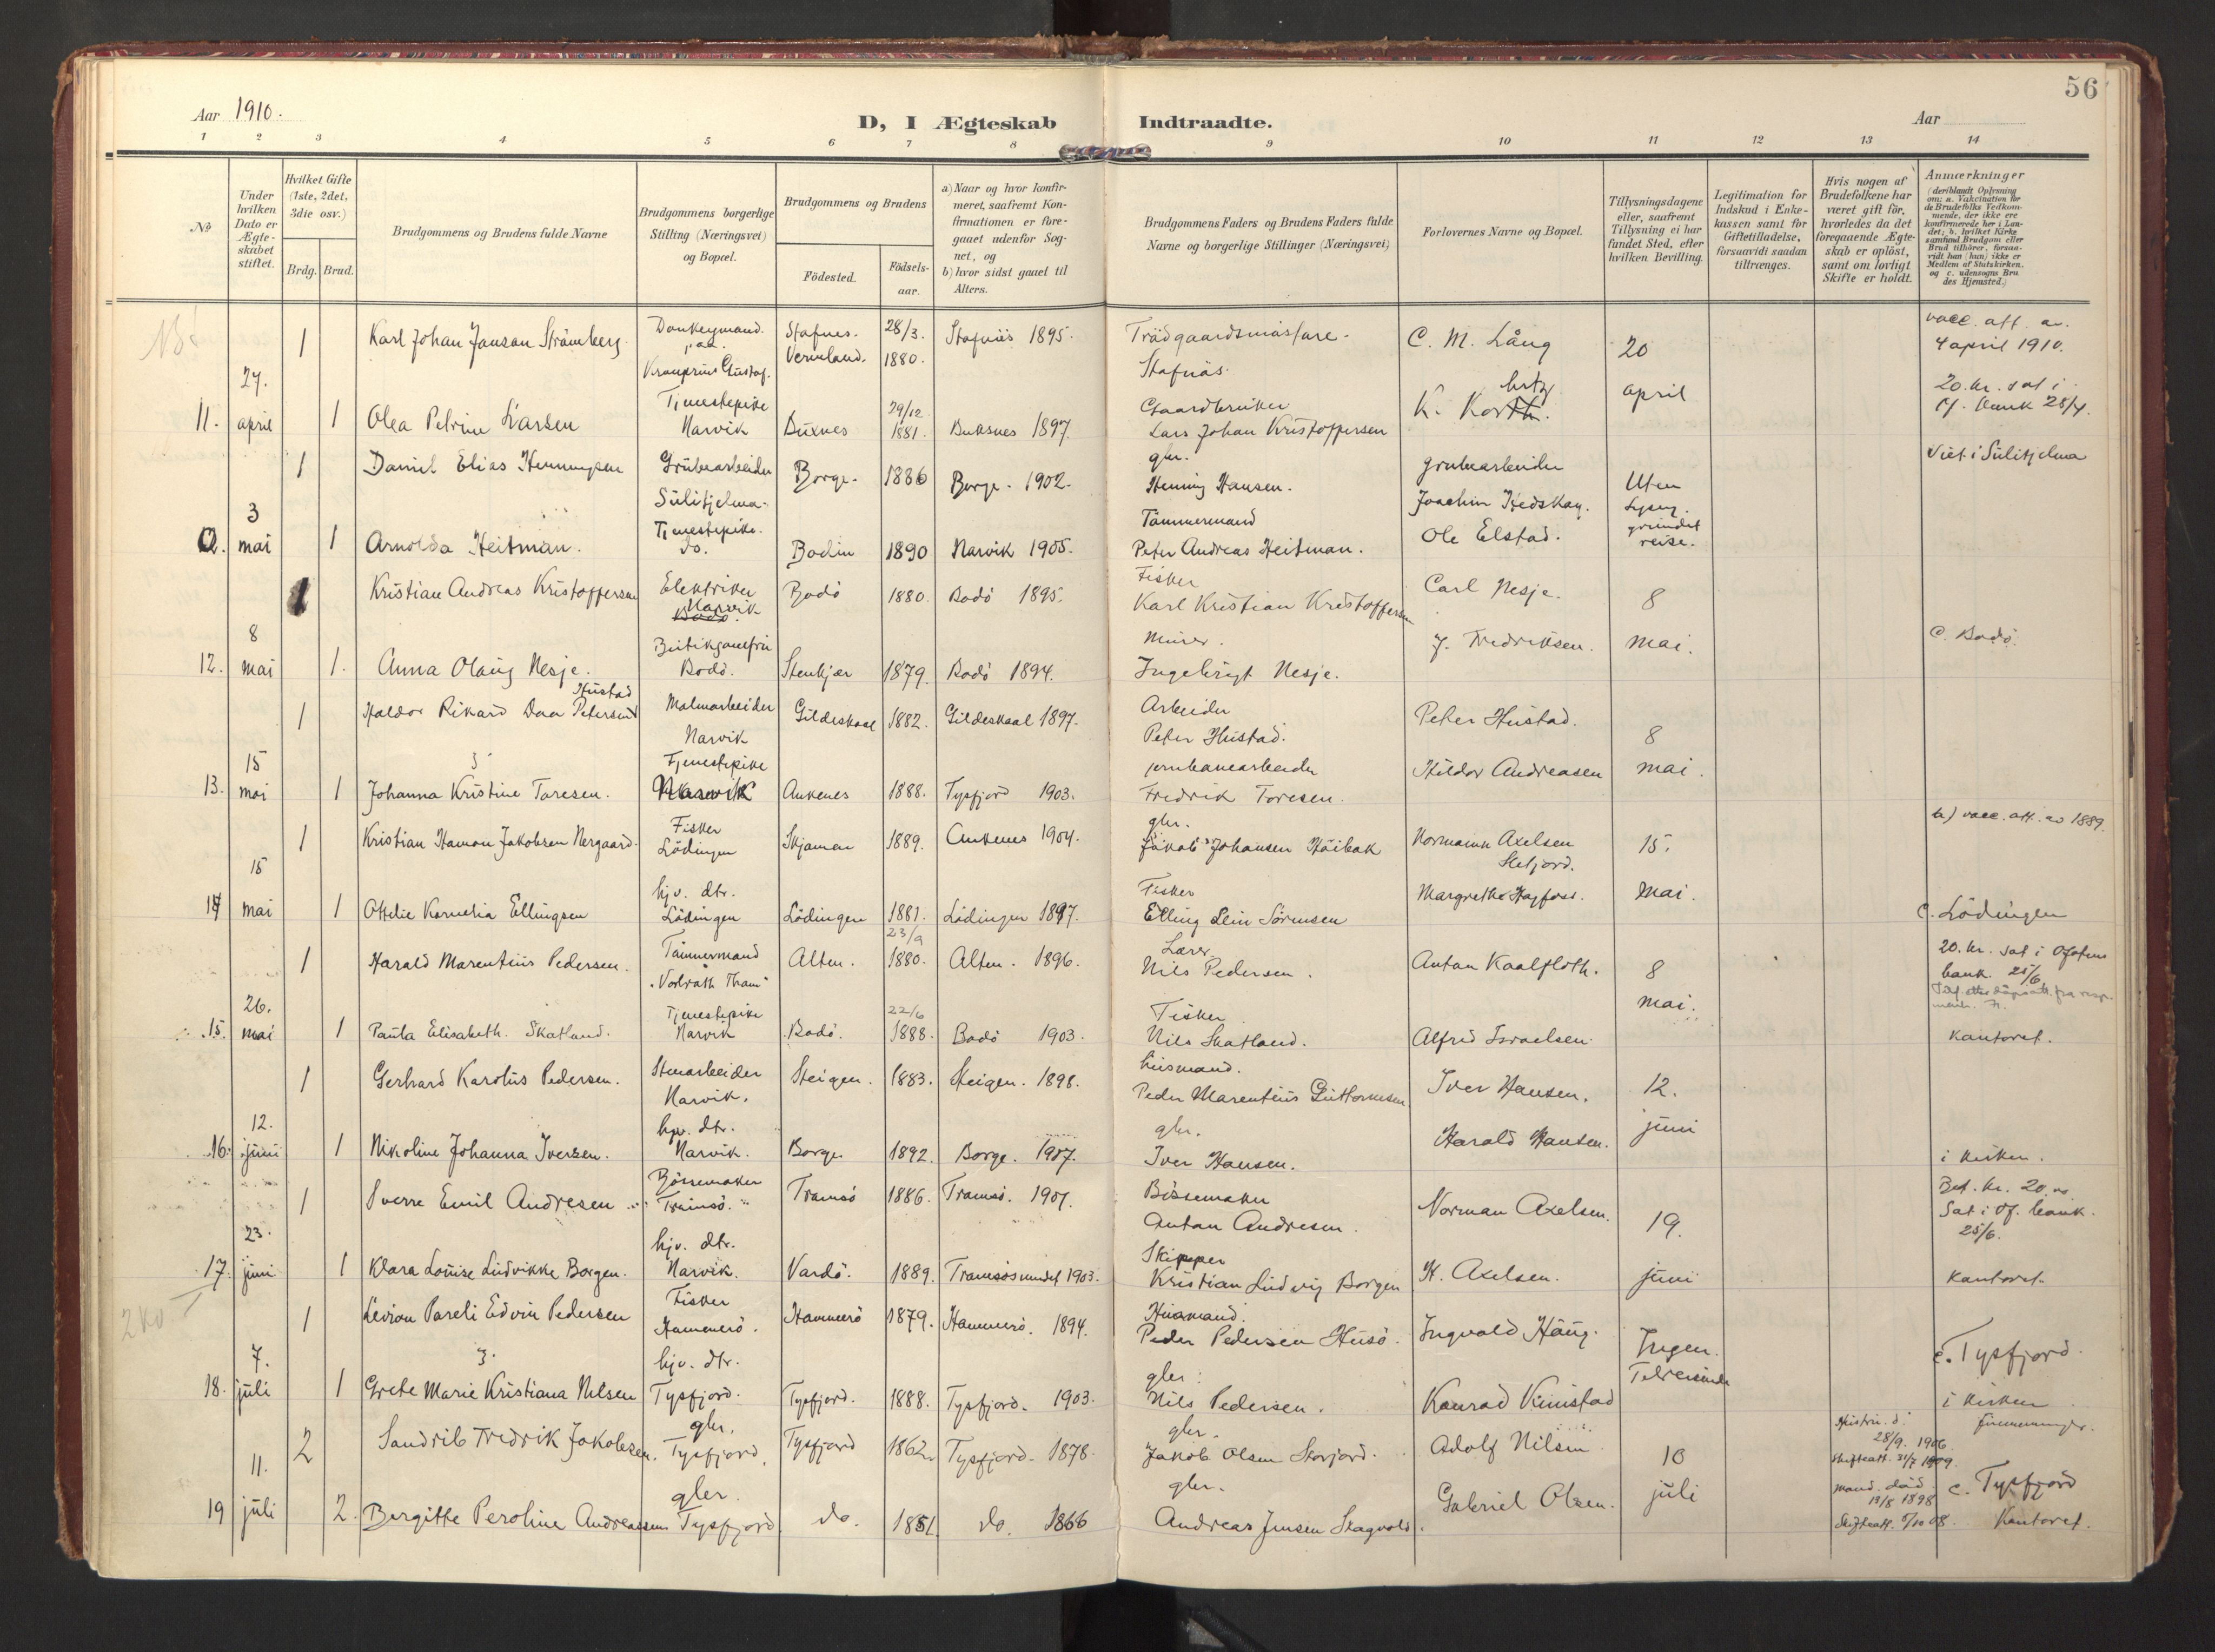 56
Aar 1910.
D, I Ægteskab Indtraadte.
Aar
1 2 3 4 5 6 7 8 9 10 11 12 13 14
No
Under hvilken Dato er Ægteskabet stiftet.
Hvilket Gifte (1ste, 2det, 3die osv.)
Brdg. Brud.
Brudgommens og Brudens fulde Navne
Brudgommens borgerlige Stilling (Næringsvei) og Bopæl.
Brudgommens og Brudens
Födested.
Födselsaar.
a) Naar og hvor konfirmeret, saafremt Konfirmationen er foregaaet udenfor Sognet, og
b) hvor sidst gaaet til Alters.
Brudgommens Faders og Brudens Faders fulde Navne og borgerlige Stillinger (Næringsvei)
Forlovernes Navne og Bopæl.
Tillysningsdagene eller, saafremt Tillysning ei har fundet Sted, efter hvilken Bevilling.
Legitimation for Indskud i Enkekassen samt for Giftetilladelse, forsaavidt saadan tiltrænges.
Hvis nogen af Brudefolkene har været gift för, hvorledes da det foregaaende Ægteskab er oplöst, samt om lovligt Skifte er holdt.
Anmærkninger
(deriblandt Oplysning om: a. Vakcination for de Brudefolks Vedkommende, der ikke ere konfirmerede her i Landet; b. hvilket Kirkesamfund Brudgom eller Brud tilhörer, forsaavidt han (hun) ikke er Medlem af Statskirken. og c. udensogns Brudes Hjemsted.)
1 Karl Johan Janson Strömberg. Donkeymand paa Kronprins Gustaf. Stafnes. Vermland. 28/3. 1880. Stafnäs 1895. Trädgaardsmästare. Stafnäs. C. M. Lång 20 vacc. att. av. 4 april 1910.
11. 27. april 1 Olea Petrine Larsen Tjenestepike Narvik Buxnes 29/12 1881. Buksnes 1897. Gaardbruker Lars Johan Kristoffersen K. Kor april 20. kr. sat i Of. bank 28/4.
1 Daniel Elias Henningsen Grubearbeider Sulitjelma. Borge. 1886 Borge. 1902. gbr. Henning Hansen. grubearbeider Joachim Hedskag. Uten Viet i Sulitjelma
3 mai 1 Arnolda Heitman. Tjenestepike. do. Bodin 1890 Narvik 1905. Tömmermand Peter Andreas Heitman. Ole Elstad. grundet reise.
1 Kristian Andreas Kristoffersen Elektriker Narvik Bodö. Bodö 1880. Bodö 1895. Fisker Karl Kristian Kristoffersen Carl Nesje. 8
12. 8 mai 1. Anna Olaug Nesje. Bodö. Stenkjær 1879. Bodö 1894. Murer. Ingebrigt Nesje. J. Fredriksen. mai. C. Bodö.
1 Haldor Rikard Daa Petersen Hustad Malmarbeider Narvik Gildeskaal 1882. Gildeskaal 1897. Arbeider Peter Hustad. Peter Hustad. 8
13. 15 mai 1 Johanna Kristine Toresen. Tjenestepike Narvik Ankenes 1888. Tysfjord 1903. jernbanearbeider Fredrik Toresen. Hildor Andreasen mai.
1 Kristian Hamon Jakobsen Nergaard. Fisker Lödingen Skjomen 1889. Ankenes 1904. gbr. Jakob Johansen Häibak Normann Axelsen 15. a) vacc. att. av 1889.
14 15 mai 1 Ottilie Kornelia Ellingsen hjv. dtr. Lödingen Lödingen 1881. Lödingen 1897. Fisker Elling Sörensen Margrethe mai. C. Lödingen
1 Harald Marentius Pedersen. Tömmermand "Volrath Tham" Alten. 23/9 1880. Alten. 1896. Lærer Nils Pedersen. Anton Kaalfloth. 8 20. kr. sat i Ofotens bank. 25/6
15. 26. mai 1 Paula Elisabeth. Skatland. Tjenestepike Narvik Bodö. 22/6 1888. Bodö 1903. Fisker Nils Skatland. Alfred Israelsen. mai. Kontoret.
1 Gerhard Karolus Pedersen. Stenarbeider Narvik. Steigen. 1883. Steigen. 1898. husmand. Peder Marentius Guttormsen Iver Hansen. 12.
16. 12. juni 1 Nikoline Johanna Iversen. hjv. dtr. Narvik. Borge 1892. Borge. 1907. gbr. Iver Hansen. Harald Hansen. juni i kirken.
1 Sverre Emil Andresen Börsemaker Tromsö. Tromsö 1886. Tromsö. 1901. Bössemaker Anton Andresen. Norman Axelsen. 19. Bet. kr. 20. Sat i Of. bank. 25/6.
17. 23. juni 1 Klara Louise Ludvikke Borgen. hjv. dtr. Narvik. Vardö. 1889. Tromsösundet 1903. Skipper Kristian Ludvig Borgen K. Axelsen. juni Kontoret.
1 Pareli Edvin Pedersen Fisker Hammerö. Hammerö 1879. Hammerö. 1894. Husmand. Peder Pedersen Husö. Ingvald Haug. Ingen.
18. 7. juli 1 Grete Marie Kristiana Nilsen hjv. dtr. Tysfjord. Tysfjord. 1888. Tysfjord. 1903. gbr. Nils Pedersen. Konrad c. Tysfjord. i kirken
2 Sandrib Fredrik Jakobsen. gbr. Tysfjord. Tysfjord 1862. Tysfjord. 1878. gbr. Jakob Olsen Storjord. Adolf Nilsen 10 Hustru d. 28/9. 1906. Skifteatt. 31/7 1909.
19 11. juli 2. Bergitte Peroline Andreassen gbr. Tysfjord do. 1851. do. 1866 gbr. Andreas Jensen Skagvold. Gabriel Olsen. juli mand. död 19/8 1898 Skifteatt. 5/10 08. c. Tysfjord Kontoret.